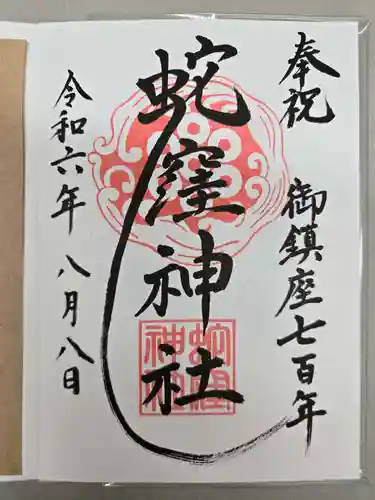 奉祝
御鎮座七百年
蛇窪神社
蛇窪神社
令和六年八月八日